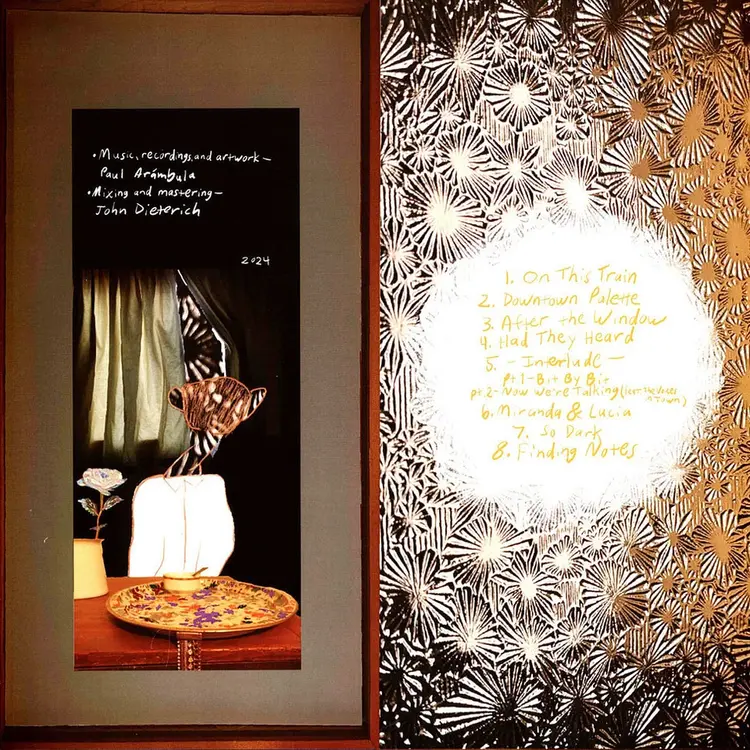 • Music, recordings, and artwork —
Paul Arámbula
• Mixing and mastering —
John Dieterich
2024
1. On This Train
2. Downtown Palette
3. After the Window
4. Had They Heard
5. — Interlude —
pt. 1 - Bit By Bit
pt. 2 - Now We're Talking (
6. Miranda & Lucia
7. So Dark
8. Finding Notes